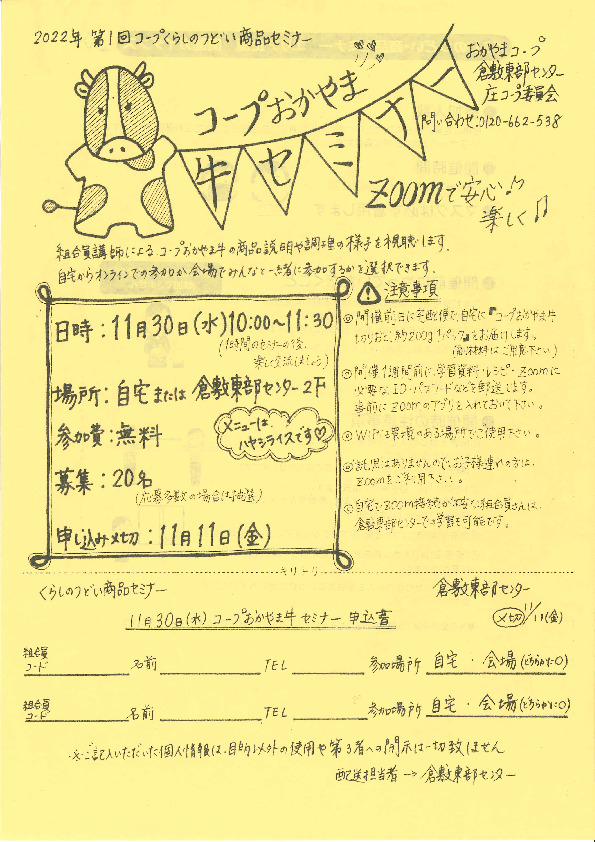 2022年 第1回コープくらしのつどい商品セミナー
おかやまコープ
倉敷東部センター
庄コープ委員会
問い合わせ:0120-662-538
コープおかやま
牛セミナー
Zoomで安心♪
楽しく♫
組合員講師によるコープおかやま牛の商品説明や調理の様子を視聴します。
自宅からオンラインでの参加か会場でみんなと一緒に参加するかを選択できます。
日時:11月30日(水)10:00~11:30
(1時間のセミナーの後、
楽しく交流しましょう)
場所:自宅または倉敷東部センター2F
参加費:無料
メニューは、
ハヤシライスです♡
募集:20名
(応募多数の場合は抽選)
申し込み〆切:11月11日(金)
注意事項
◎開催前日に宅配便で、自宅に『コープおかやま牛
切りおとし約200g 1パック』をお届けします。
(他の材料はご用意下さい)
◎開催1週間前に、学習資料・レシピ・Zoomに
必要なID・パスワードなどを郵送します。
事前にZoomのアプリを入れておいて下さい。
◎WiFi環境のある場所でご使用下さい。
◎託児はありませんので、お子様連れの方は、
Zoomをご利用下さい。
◎自宅でZoom接続が不安な組合員さんは、
倉敷東部センターでの学習も可能です。
キリトリ
くらしのつどい商品セミナー
倉敷東部センター
11月30日(水) コープおかやま牛セミナー 申込書
〆切 11/11(金)
組合員コード 名前 TEL 参加場所 自宅・会場(どちらかに○)
組合員コード 名前 TEL 参加場所 自宅・会場(どちらかに○)
※ご記入いただいた個人情報は、目的以外の使用や第3者への開示は一切致しません
配送担当者→倉敷東部センター